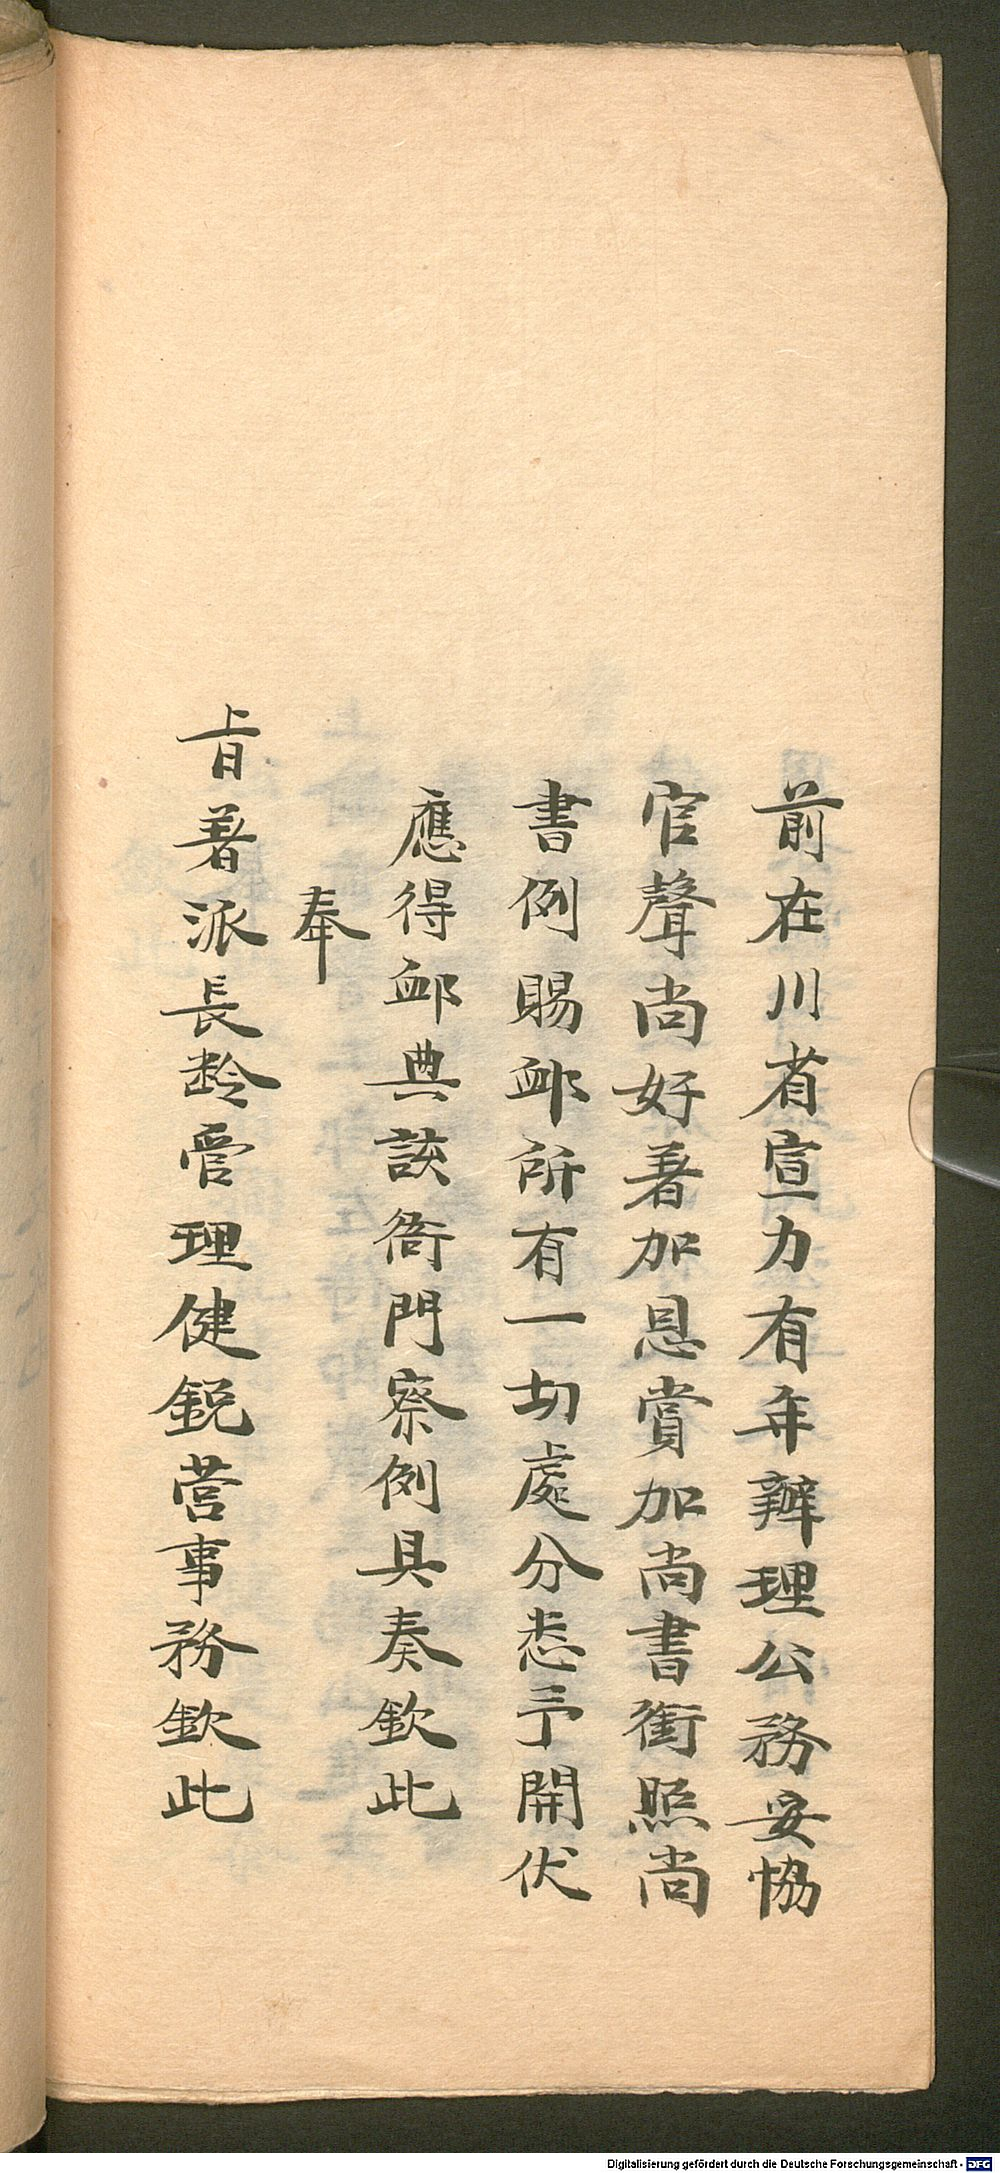 前在川省宣力有年辦理公務妥協
官聲尚好著加恩賞加尚書銜照尚
書例賜卹所有一切處分悉予開伏
應得卹典該衙門察例具奏欽此
奉
旨著派長齡管理健銳營事務欽此
Digitalisierung gefördert durch die Deutsche Forschungsgemeinschaft - DFG